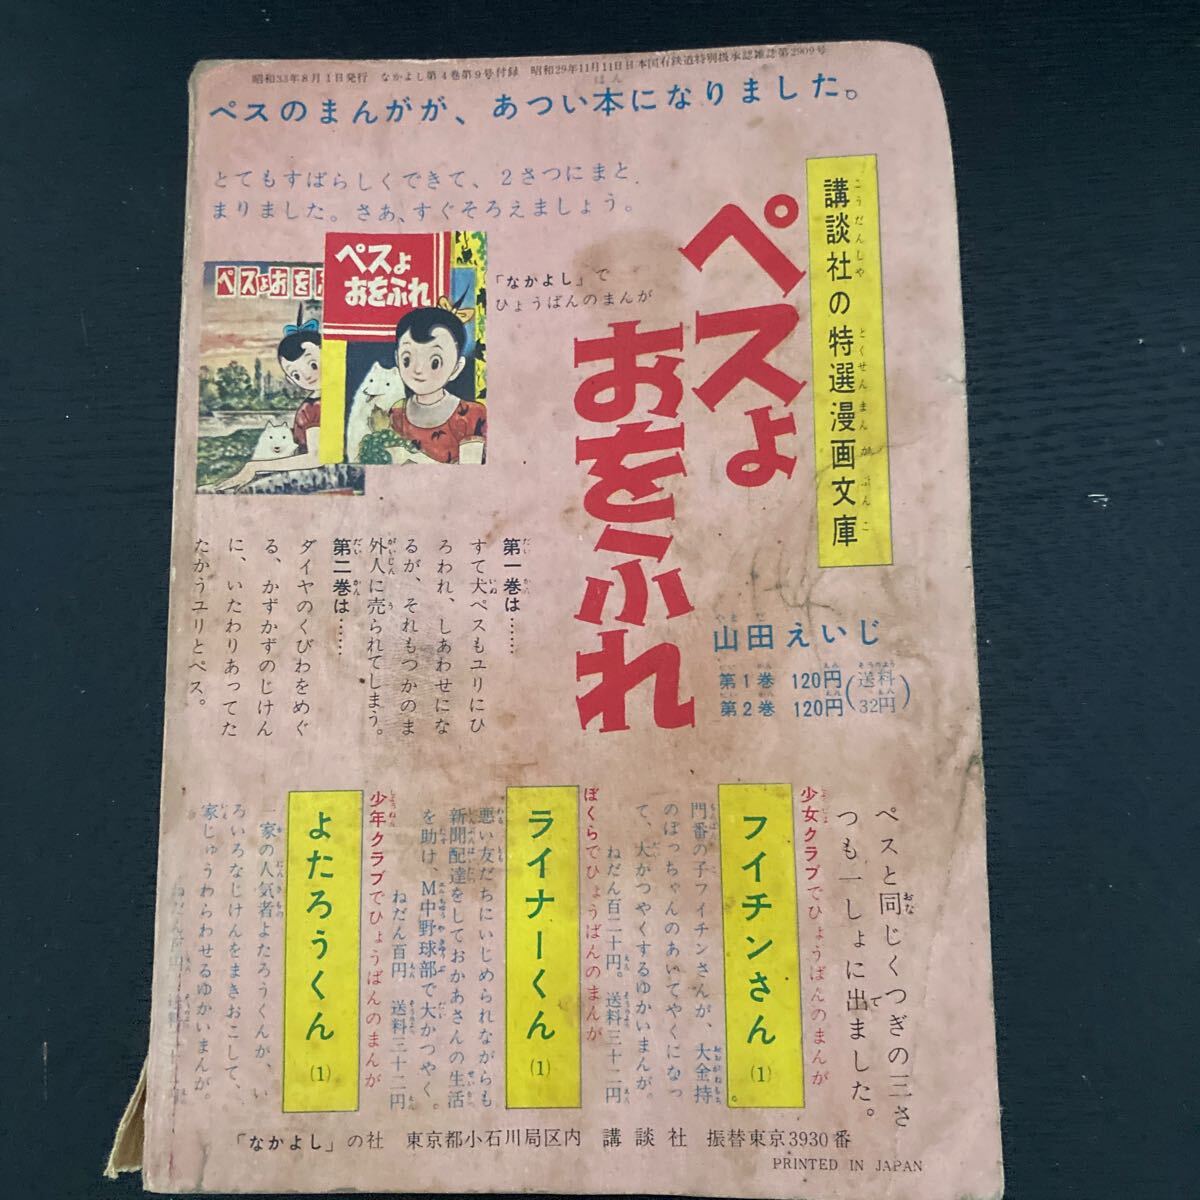 昭和33年8月1日発行 なかよし第4巻第9号付録 昭和29年11月11日日本国有鉄道特別扱承認雑誌第2909号
ペスのまんがが、あつい本になりました。
とてもすばらしくできて、2さつにまと
まりました。さあ、すぐそろえましょう。
講談社の特選漫画文庫
ペスよ
おをふれ
「なかよし」で
ひょうばんのまんが
ペスよおをふ
ペスよ
おをふれ
山田えいじ
第1巻 120円
第2巻 120円
(送料
32円)
第一巻は……
すて犬ペスもユリにひ
ろわれ、しあわせにな
るが、それもつかのま
外人に売られてしまう。
第二巻は……
ダイヤのくびわをめぐ
る、かずかずのじけん
に、いたわりあってた
たかうユリとペス。
ペスと同じくつぎの三さ
つも一しょに出ました。
少女クラブでひょうばんのまんが
フイチンさん (1)
門番の子フイチンさんが、大金持
のぼっちゃんのあいてやくになっ
て、大かつやくするゆかいまんが。
ねだん百二十円。送料三十二円
ぼくらでひょうばんのまんが
ライナーくん (1)
悪い友だちにいじめられながらも
新聞配達をしておかあさんの生活
を助け、M中野球部で大かつやく。
ねだん百円 送料三十二円
少年クラブでひょうばんのまんが
よたろうくん (1)
一家の人気者よたろうくんが、い
ろいろなじけんをまきおこして、
家じゅうわらわせるゆかいまんが。
ねだん百円
「なかよし」の社 東京都小石川局区内 講談社 振替東京3930番
PRINTED IN JAPAN